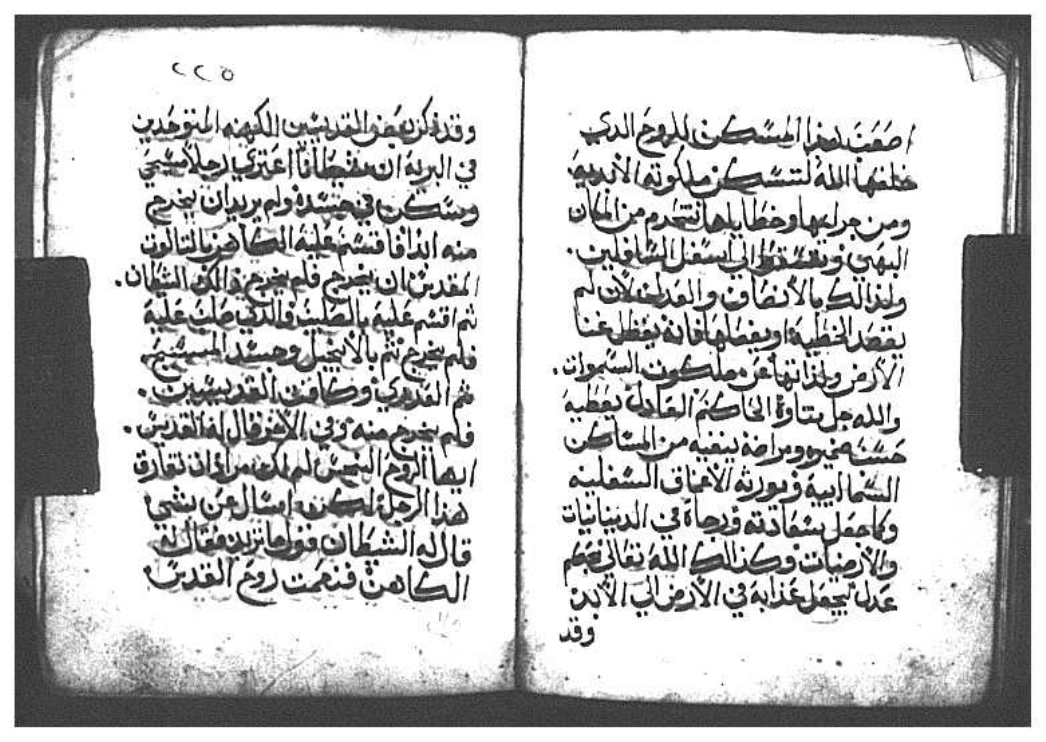 اصعب هذا المسكن للروح الذي
خلقها الله لتسكن ملكوته الأبدية
ومن جرايمها وخطاياها تنحدم من المكان
البهي و الي اسفل السافلين.
ولذالك بالأنصاف والعدل لان لم
يقصد الخطية او يفعلها فانه
الأرض ولذاتها عن ملكوت السموات.
والله جل الحاكم العادل يعطيه
حسب ضميره ومراضه ينفيه من المساكن
السمايية ويورثه الأعماق السفلية
وكما جعل سعادته ورجاه في الدينانيات
والأرضيات وكذلك الله تعالي بحكم
عدل يجعل عذابه في الأرض الي الأبد
وقد
٢٢٥
وقد ذكر بعض القديسين الكهنه المتوحدين
في البريه ان شيطانا اعتري رجلا مسيحي
وسكن في جسده ولم يريد ان يخرج
منه ابدا فاقسم عليه الكاهن بالثالوث
المقدس ان يخرج فلم يخرج ذالك الشيطان.
ثم اقسم عليه بالصليب والذي صلب عليه
فلم يخرج ثم بالأنجيل وجسد المسيح
ثم العدري وكافت القديسين.
فلم يخرج منه وفي الأخر قال له القديس.
ايها الروح النجس لم ان تفارق
هذا الرجل لكن اسال عن شي
قال له الشيطان قول ما تريد فقال له
الكاهن فنعمت روح القدس